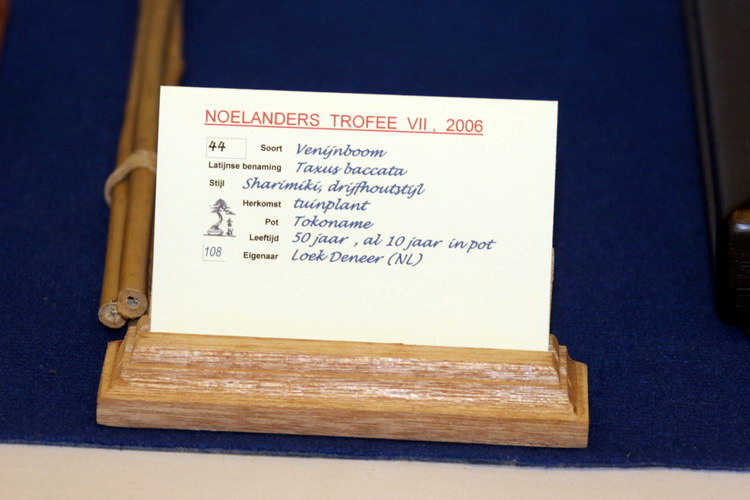 NOELANDERS TROFEE VII, 2006
44 Soort Venijnboom
Latijnse benaming Taxus baccata
Stijl Sharimiki, drijfhoutstijl
Herkomst tuinplant
Pot Tokoname
Leeftijd 50 jaar , al 10 jaar in pot
108 Eigenaar Loek Deneer (NL)